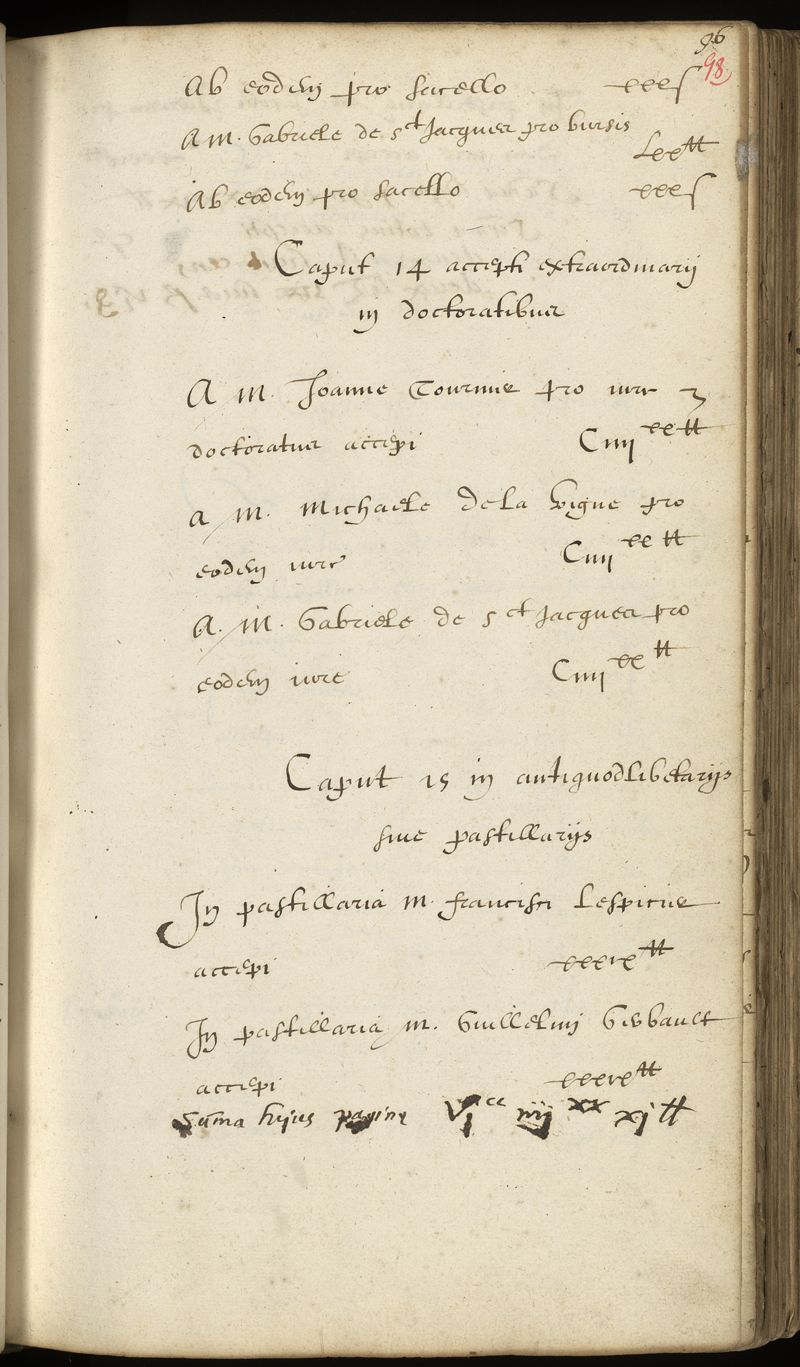 96
98
Ab eodem pro sacello xxx s
A M. Gabriele de sct Jacques pro bursis
Lxx ℔
Ab eodem pro sacello xxx s
Caput 14 accepti extraordinarij
in doctoratibus
A M. Joanne Tournie pro iure
doctoratus accepi Ciiij xx ℔
A M. Michaele de la vigne pro
eodem iure Ciiij xx ℔
A. M. Gabriele de sct Jacques pro
eodem iure Ciiij xx ℔
Caput 15 in antiquodlibetarijs
sive pastillarijs
In pastillaria M. francisci Lespicie
accepi xxxvx ℔
In pastillaria M. Guillelmi Gebault
accepi xxxvx ℔
Suma hujus pagine Vj cc iiij xx xj ℔